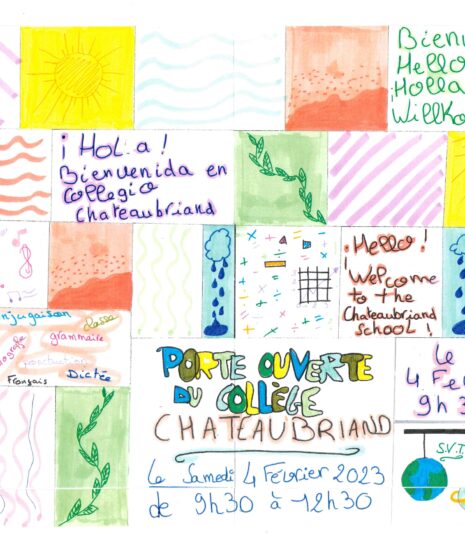 Bienv
Hello
¡Holla
Willko
¡ Hol.a !
Bienvenida en
collegio
chateaubriand
¡Hello !
¡Welcome
to the
Chateaubriand
school !
njugaison
classe
grammaire
ponctuation
Français
Dictée
PORTE OUVERTE
DU COLLÈGE
CHATEAUBRIAND
Le Samedi 4 Février 2023
de 9h30 à 12h30
le
4 Fev
9h 3
S.V.T